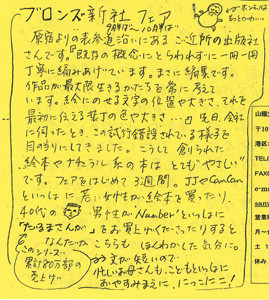 ブロンズ新社 フェア
9月ば〜10月ば
原宿よりの表参道沿いにあるご近所の出版社
さんです。『既存の概念にとらわれずに一冊一冊
丁寧に編みあげています。まさに編集です。
作品が最大限生きるかたちを常に考えて
います。絵にのせる文字の位置や大きさ、それを
最初に伝える装丁の色や大きさ…』 先日、会社
に伺ったとき、この試行錯誤されている様子を
目の当りにしてきました。こうして創られた
絵本やナチュラル系の本は とても"やさしい"
です。フェアをはじめて3週間。JJやCanCan
といっしょに若い女性が絵本を買ったり、
40代の 男性が'Number'といっしょに
「だるまさんが」をお買上げくださったりすると
なんだか こちらも ほんわかした気分に。
このシリーズ
累計80万部の
売上げ
文が短いので
忙しいお母さんも、こどもといっしょに
おやすみまえに、にっこにこ!
山陽
〒10
港区
TEL
FAX
e-m
営業
月〜
土 1
休み